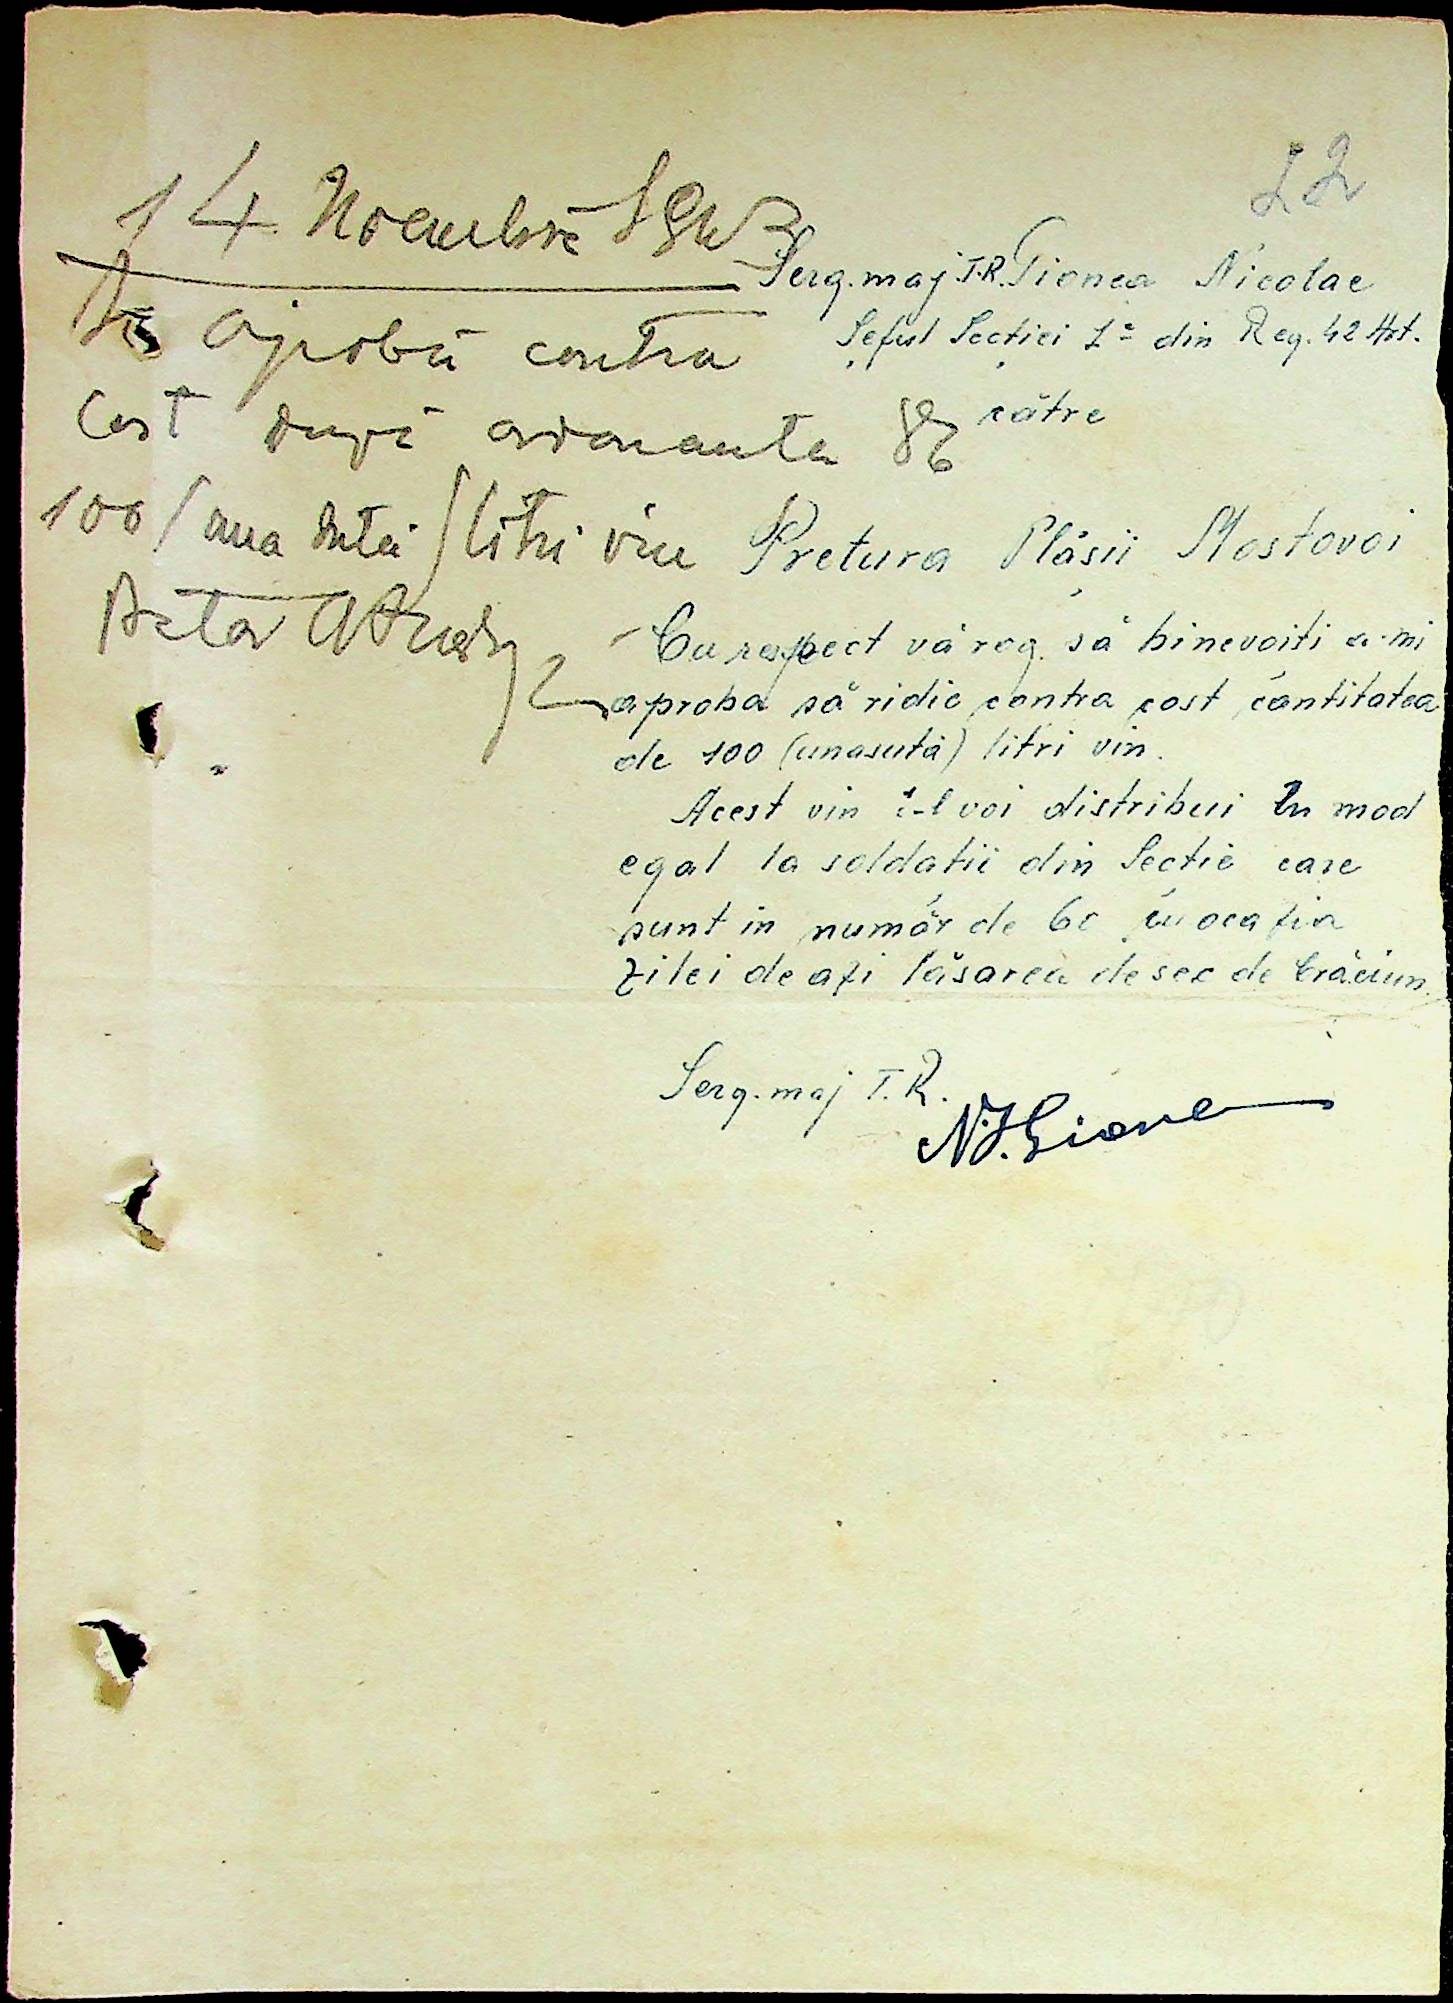 22
14 Noembrie 1943
Se aprobă contra
cost după ordonanta 86
100/una sută/litri vin
Pretor
Serg. maj T.R. Gionea Nicolae
Șeful Secției 1ª din Reg. 42 Art.
către
Pretura Plășii Mostovoi
Cu respect vă rog să binevoiți a-mi
aproba să ridic contra cost cantitatea
de 100 (unasută) litri vin.
Acest vin îl voi distribui în mod
egal la soldații din Secție care
sunt in număr de 60 cu ocazia
zilei de azi lăsarea de sec de Crăciun.
Serg. maj T.R.
N.I. Gionea